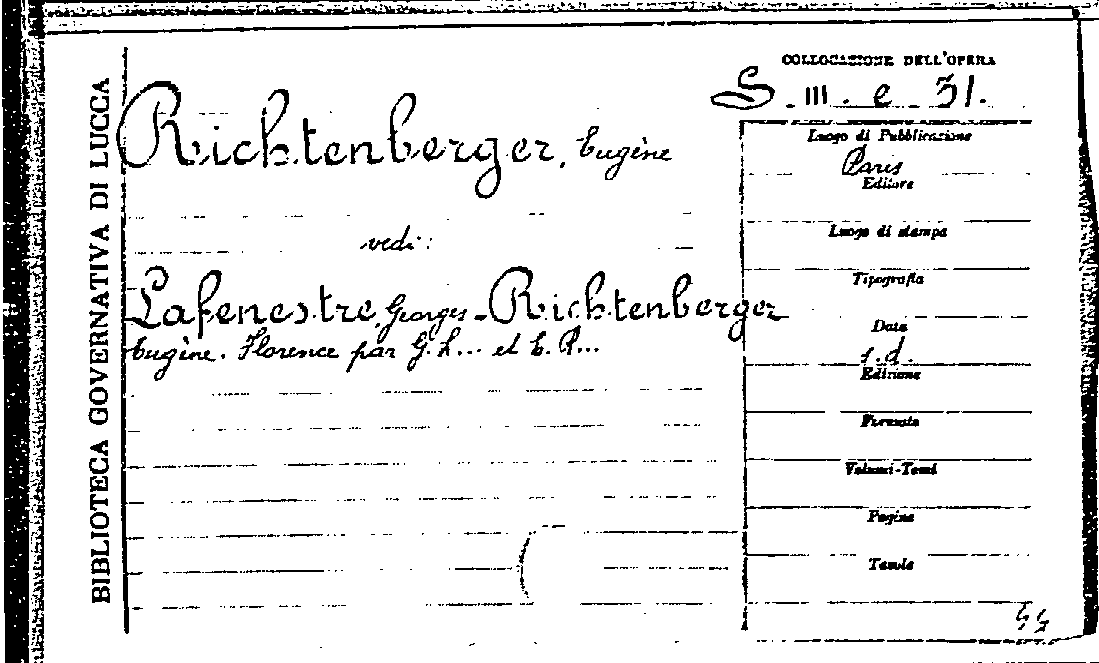 BIBLIOTECA GOVERNATIVA DI LUCCA
COLLOCAZIONE DELL'OPERA
S. III. e. 31.
Richtenberger, Eugène
vedi:
Lafenestre, Georges - Richtenberger
Eugène. Florence par G. L... et E. R...
Luogo di Pubblicazione
Paris
Editore
Luogo di stampa
Tipografia
Data
s.d.
Edizione
Formato
Volumi-Tomi
Pagine
Tavole